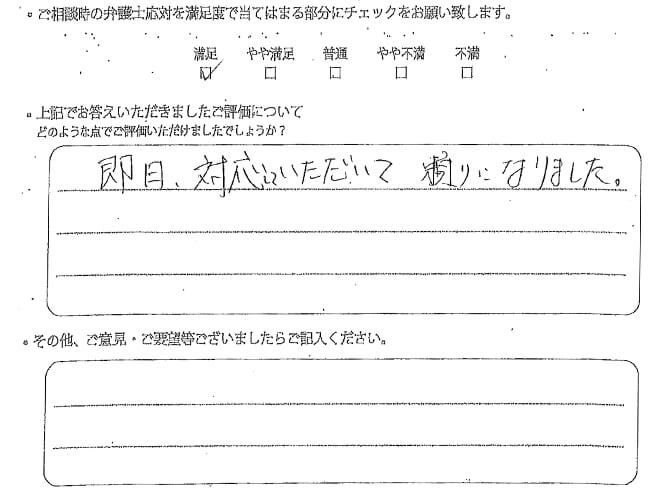 ・ご相談時の弁護士応対を満足度で当てはまる部分にチェックをお願い致します。
満足 やや満足 普通 やや不満 不満
☑ □ □ □ □
・上記でお答えいただきましたご評価について
どのような点でご評価いただけましたでしょうか?
即日、対応していただいて 頼りになりました。
・その他、ご意見・ご要望等ございましたらご記入ください。